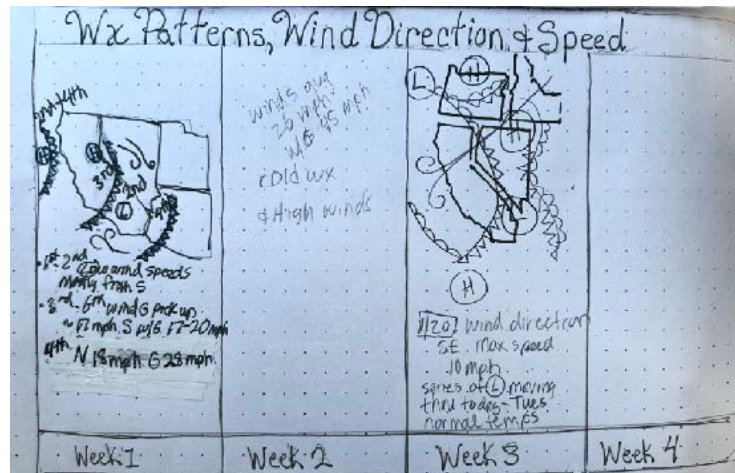 Wx Patterns, Wind Direction & Speed
2nd + 4th
H
H
3rd
2nd
L
4th
• 1st-2nd
Low wind speeds
mostly from S
• 3rd-6th wind G pick up
~17mph S w/G 17-20mph
4th N 18mph G 28mph.
Week 1
winds avg
25 mph
w/G 45 mph
cold wx
& High winds
Week 2
L
H
H
L
H
1/20 wind direction
SE max speed
10 mph
series of L moving
thru today - Tues
normal temps
Week 3
Week 4